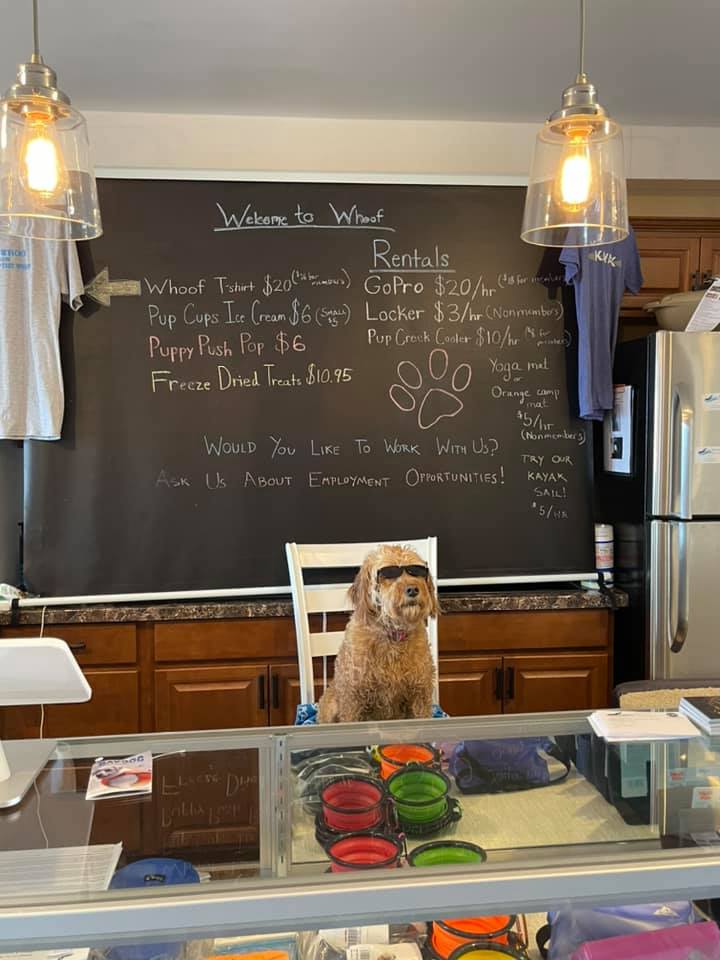 Welcome to Whoof
Whoof T-shirt $20 ($16 for members)
Pup Cups Ice Cream $6 (small $5)
Puppy Push Pop $6
Freeze Dried Treats $10.95
Rentals
GoPro $20/hr ($18 for members)
Locker $3/hr (Nonmembers)
Pup Creek Cooler $10/hr ($8 for members)
Yoga mat
or
Orange camp
mat
$5/hr
(Nonmembers)
TRY OUR
KAYAK
SAIL!
$5/HR
WOULD YOU LIKE TO WORK WITH US?
ASK US ABOUT EMPLOYMENT OPPORTUNITIES!
KYK